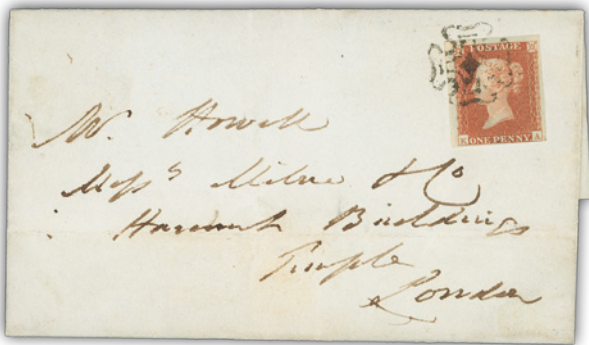 POSTAGE
ONE PENNY
A
Mr. Howell
Messrs Milne & Co
Harcourt Buildings
Temple
London